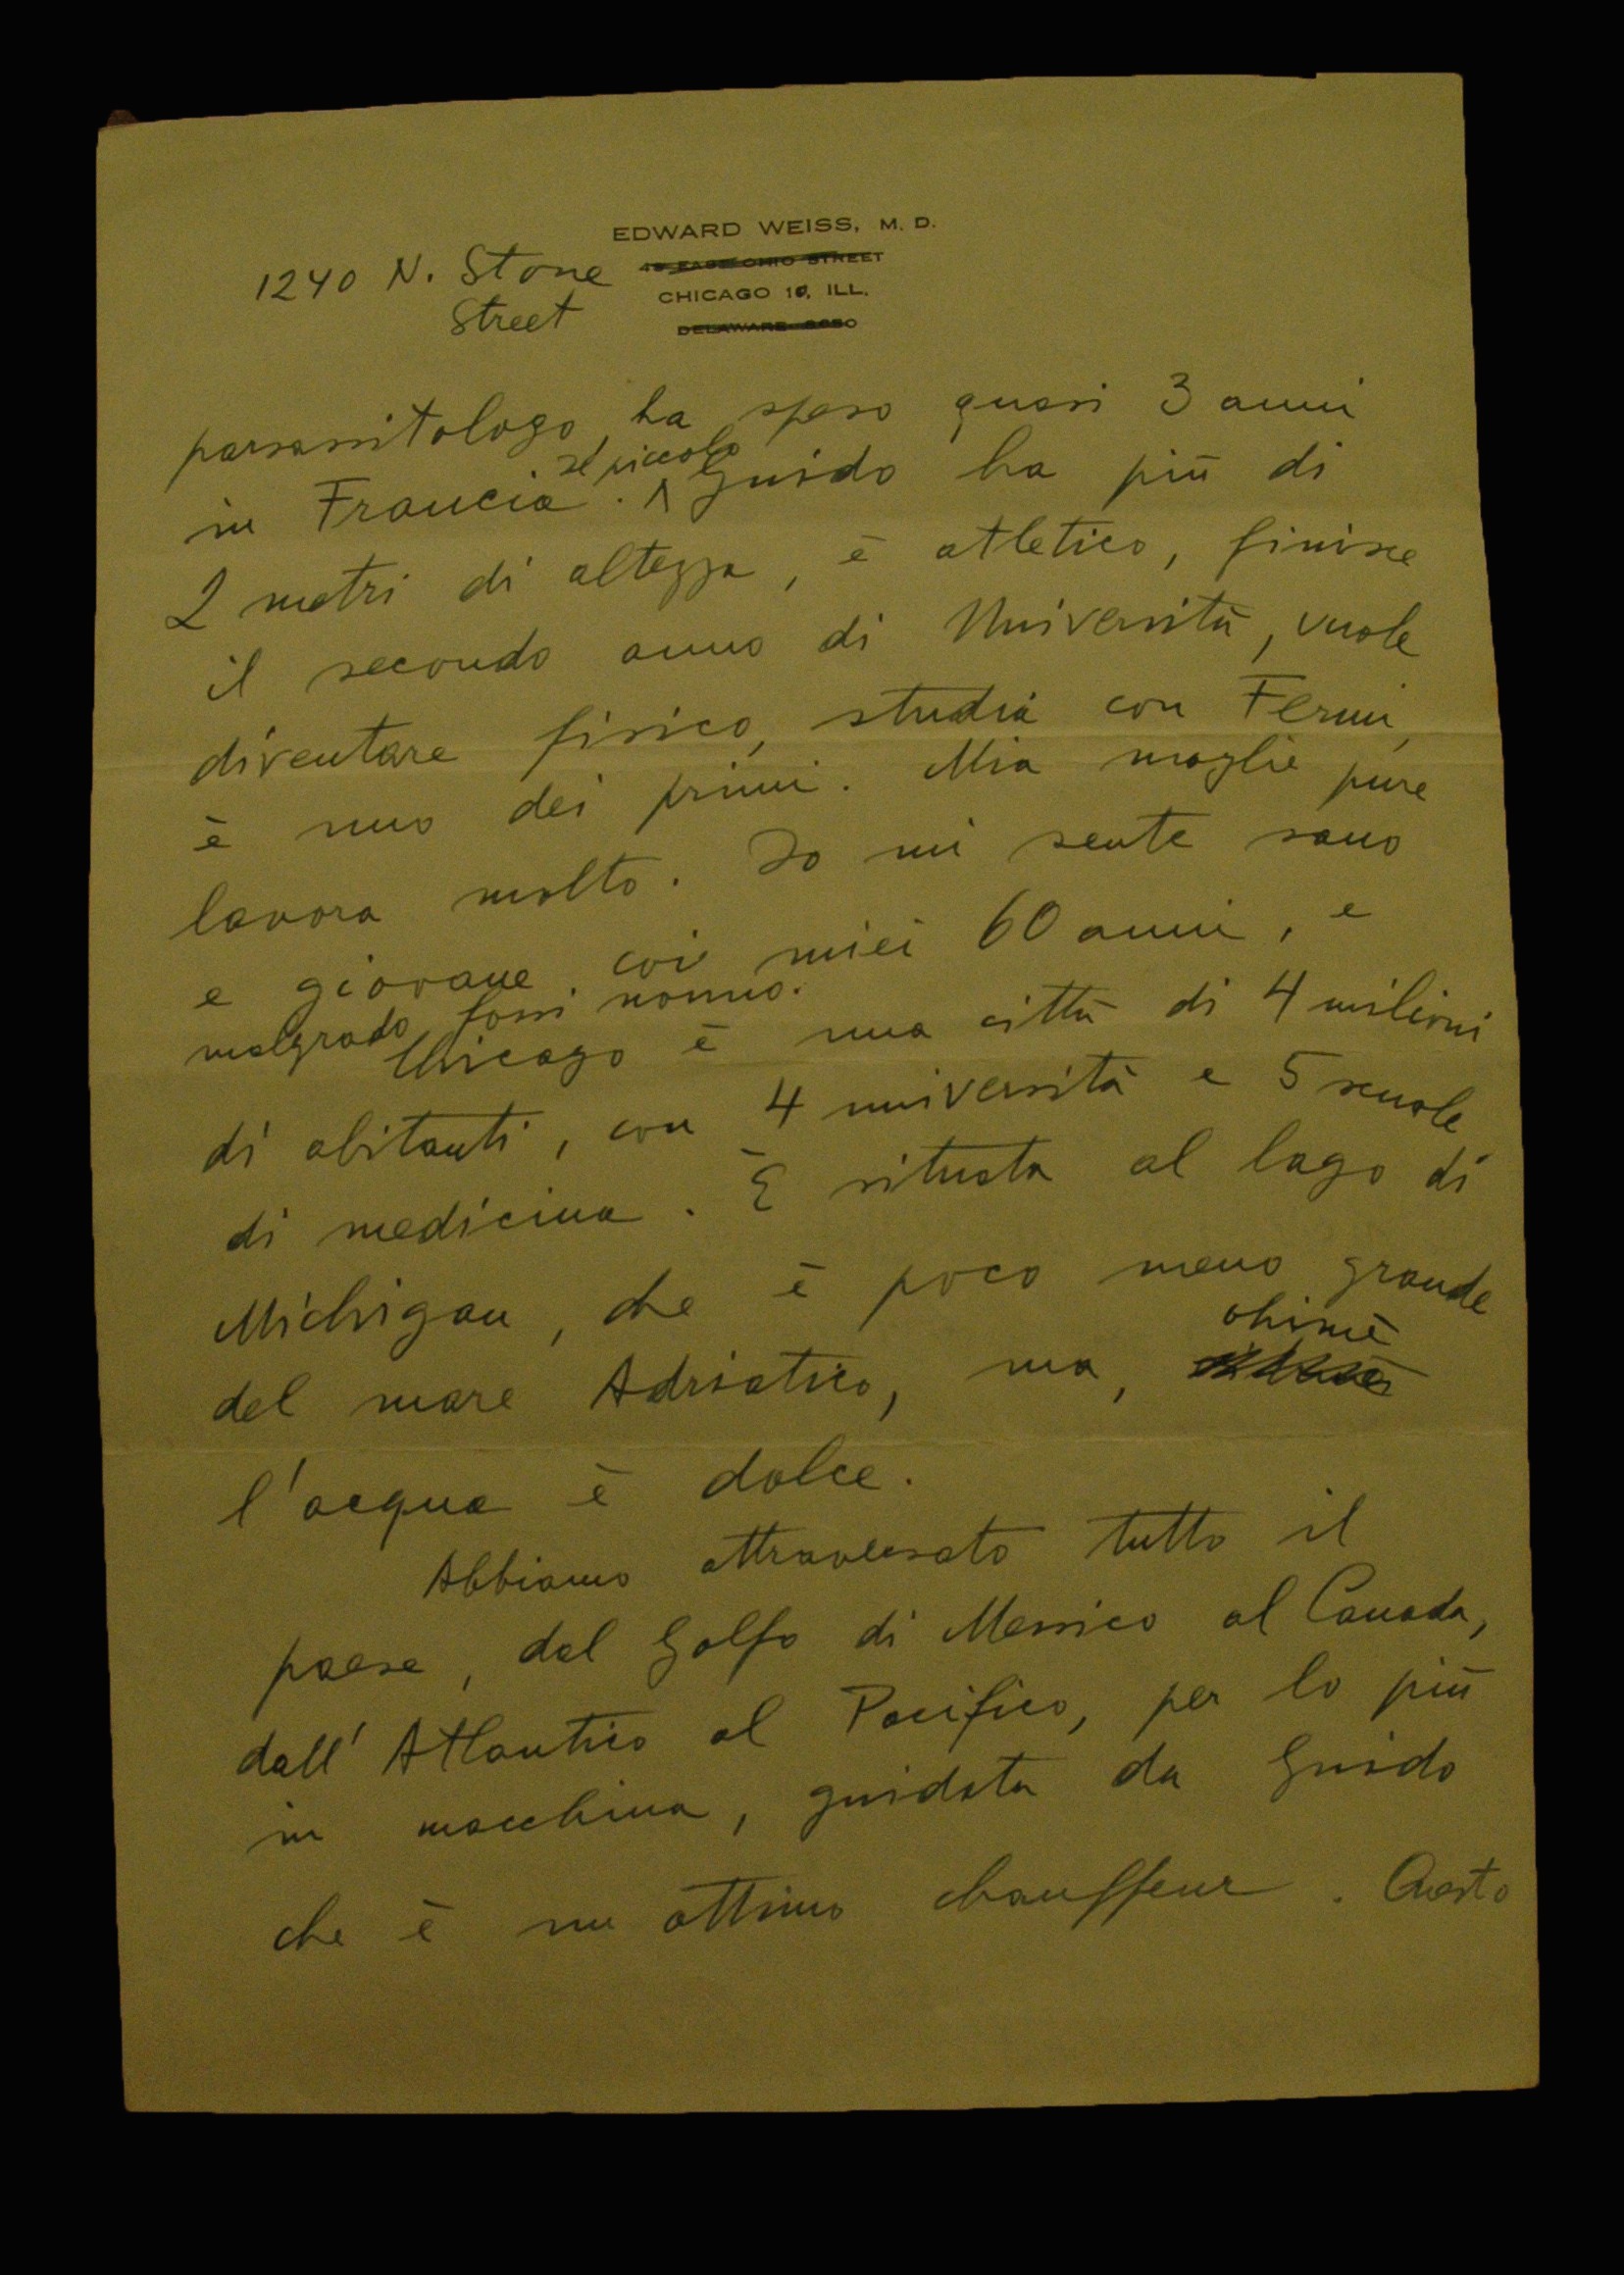 EDWARD WEISS, M. D.
1240 N. Stone
Street
49 EAST OHIO STREET
CHICAGO 10, ILL.
DELAWARE
parassitologo, ha speso quasi 3 anni
in Francia. Il piccolo Guido ha più di
2 metri di altezza, è atletico, finisce
il secondo anno di Università, vuole
diventare fisico, studia con Fermi,
è uno dei primi. Mia moglie pure
lavora molto. Io mi sente sano
e giovane coi miei 60 anni, e
malgrado fossi nonno.
Chicago è una città di 4 milioni
di abitanti, con 4 università e 5 scuole
di medicina. È situata al lago di
Michigan, che è poco meno grande
del mare Adriatico, ma, ohimè
l'acqua è dolce.
Abbiamo attraversato tutto il
paese, dal Golfo di Messico al Canada,
dall'Atlantico al Pacifico, per lo più
in macchina, guidata da Guido
che è un ottimo chauffeur. Questo